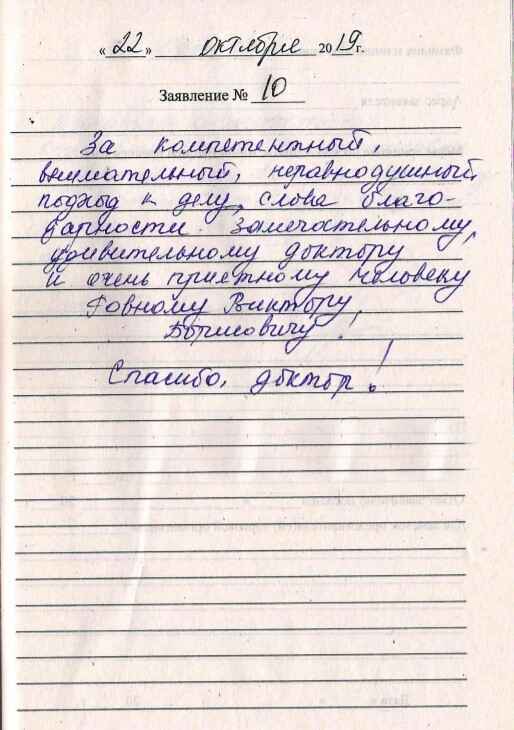 «22» октября 2019г.
Заявление № 10
За компетентный,
внимательный, неравнодушный
подход к делу, слова благо-
дарности замечательному,
удивительному доктору
и очень приятному человеку
Ровному Виктору
Борисовичу!
Спасибо, доктор!